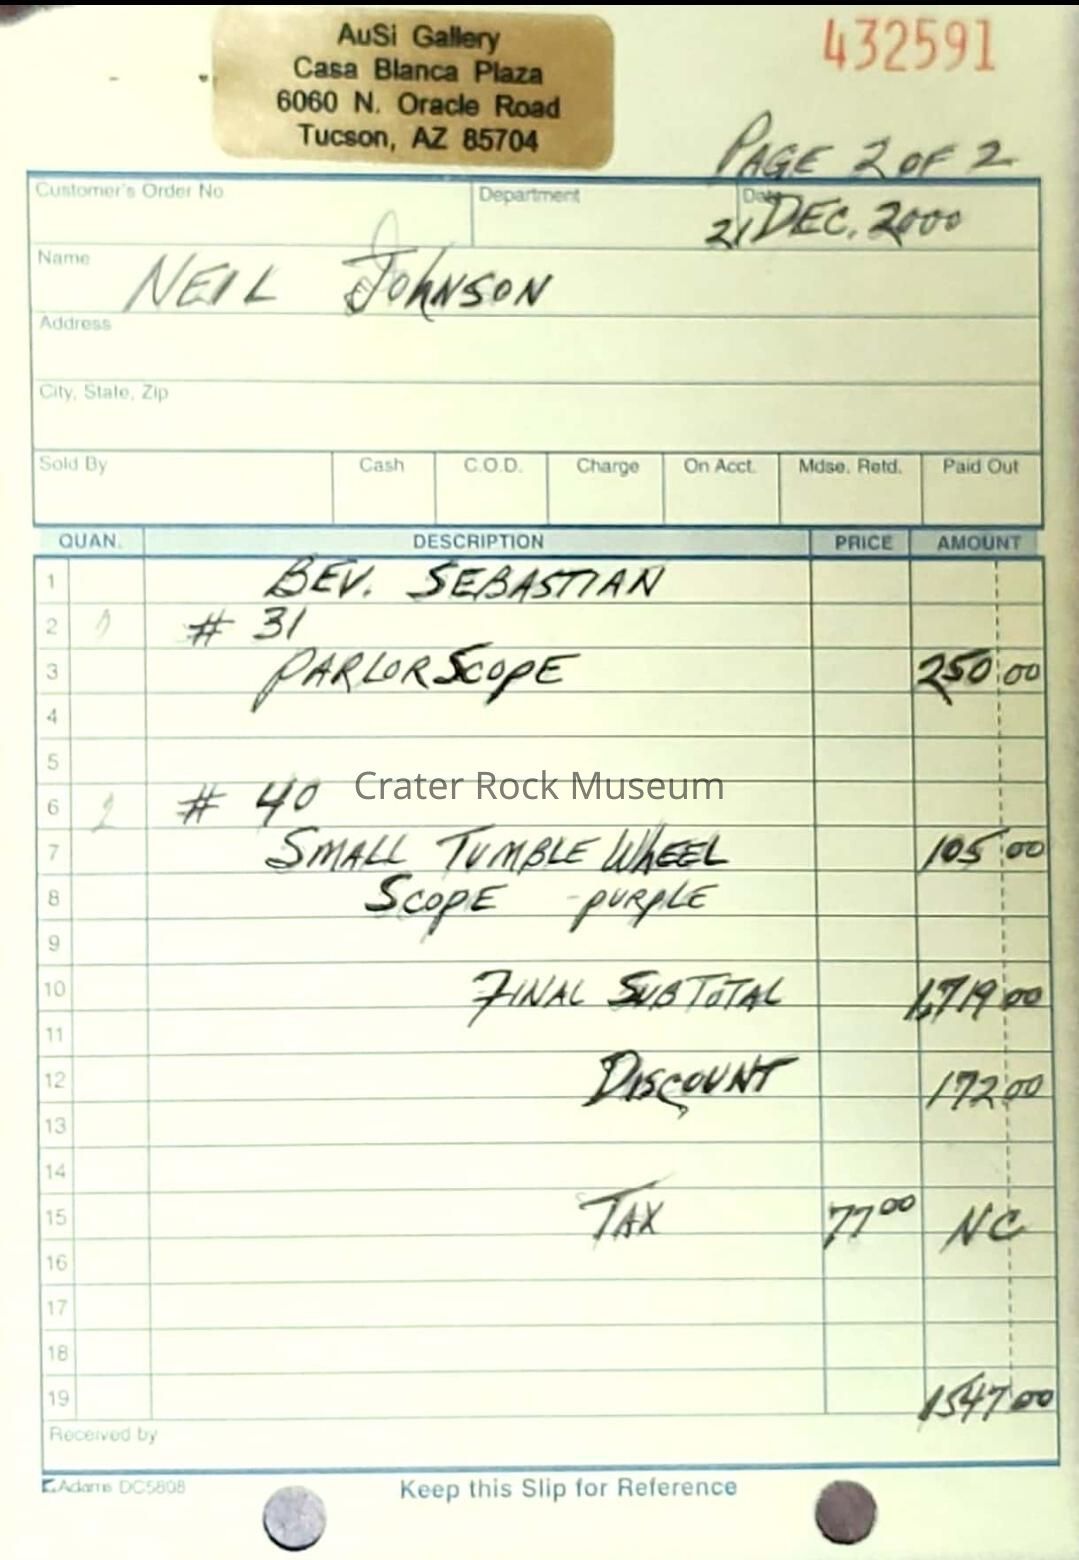 AuSi Gallery
Casa Blanca Plaza
6060 N. Oracle Road
Tucson, AZ 85704
432591
PAGE 2 OF 2
Customer's Order No Department Date
21 DEC. 2000
Name NEIL JOHNSON
Address
City, State, Zip
Sold By Cash C.O.D. Charge On Acct. Mdse. Retd. Paid Out
QUAN. DESCRIPTION PRICE AMOUNT
1 BEV. SEBASTIAN
2 # 31
3 PARLOR SCOPE 250 00
4
5
Crater Rock Museum
6 # 40
7 SMALL TUMBLE WHEEL 105 00
8 SCOPE - PURPLE
9
10 FINAL SUBTOTAL 1,719 00
11
12 DISCOUNT 172 00
13
14
15 TAX 77 00 NC
16
17
18
19 1547 00
Received by
Adams DC5808 Keep this Slip for Reference